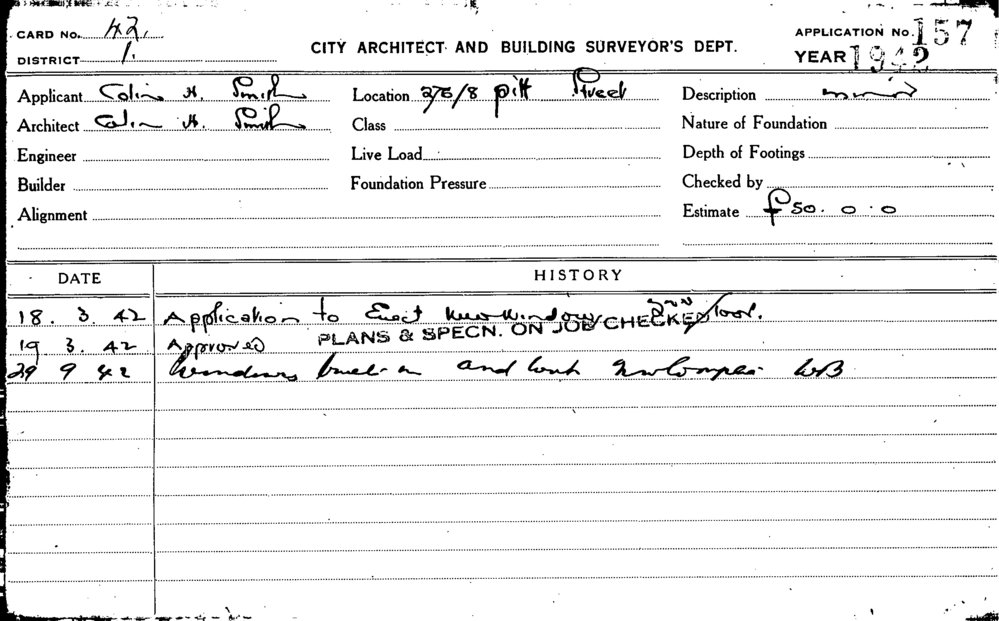 CARD No. 42.
APPLICATION No. 157
DISTRICT 1.
CITY ARCHITECT AND BUILDING SURVEYOR'S DEPT.
YEAR 1942
Applicant Colin H. Smith
Location 276/8 Pitt Street
Description
Architect Colin H. Smith
Class
Nature of Foundation
Engineer
Live Load
Depth of Footings
Builder
Foundation Pressure
Checked by
Alignment
Estimate £50. 0. 0
DATE
HISTORY
18. 3. 42 Application to Erect new window 2nd floor.
PLANS & SPECN. ON JOB CHECKED
19 3. 42 Approved
29 9 42 Windows built in and work WB